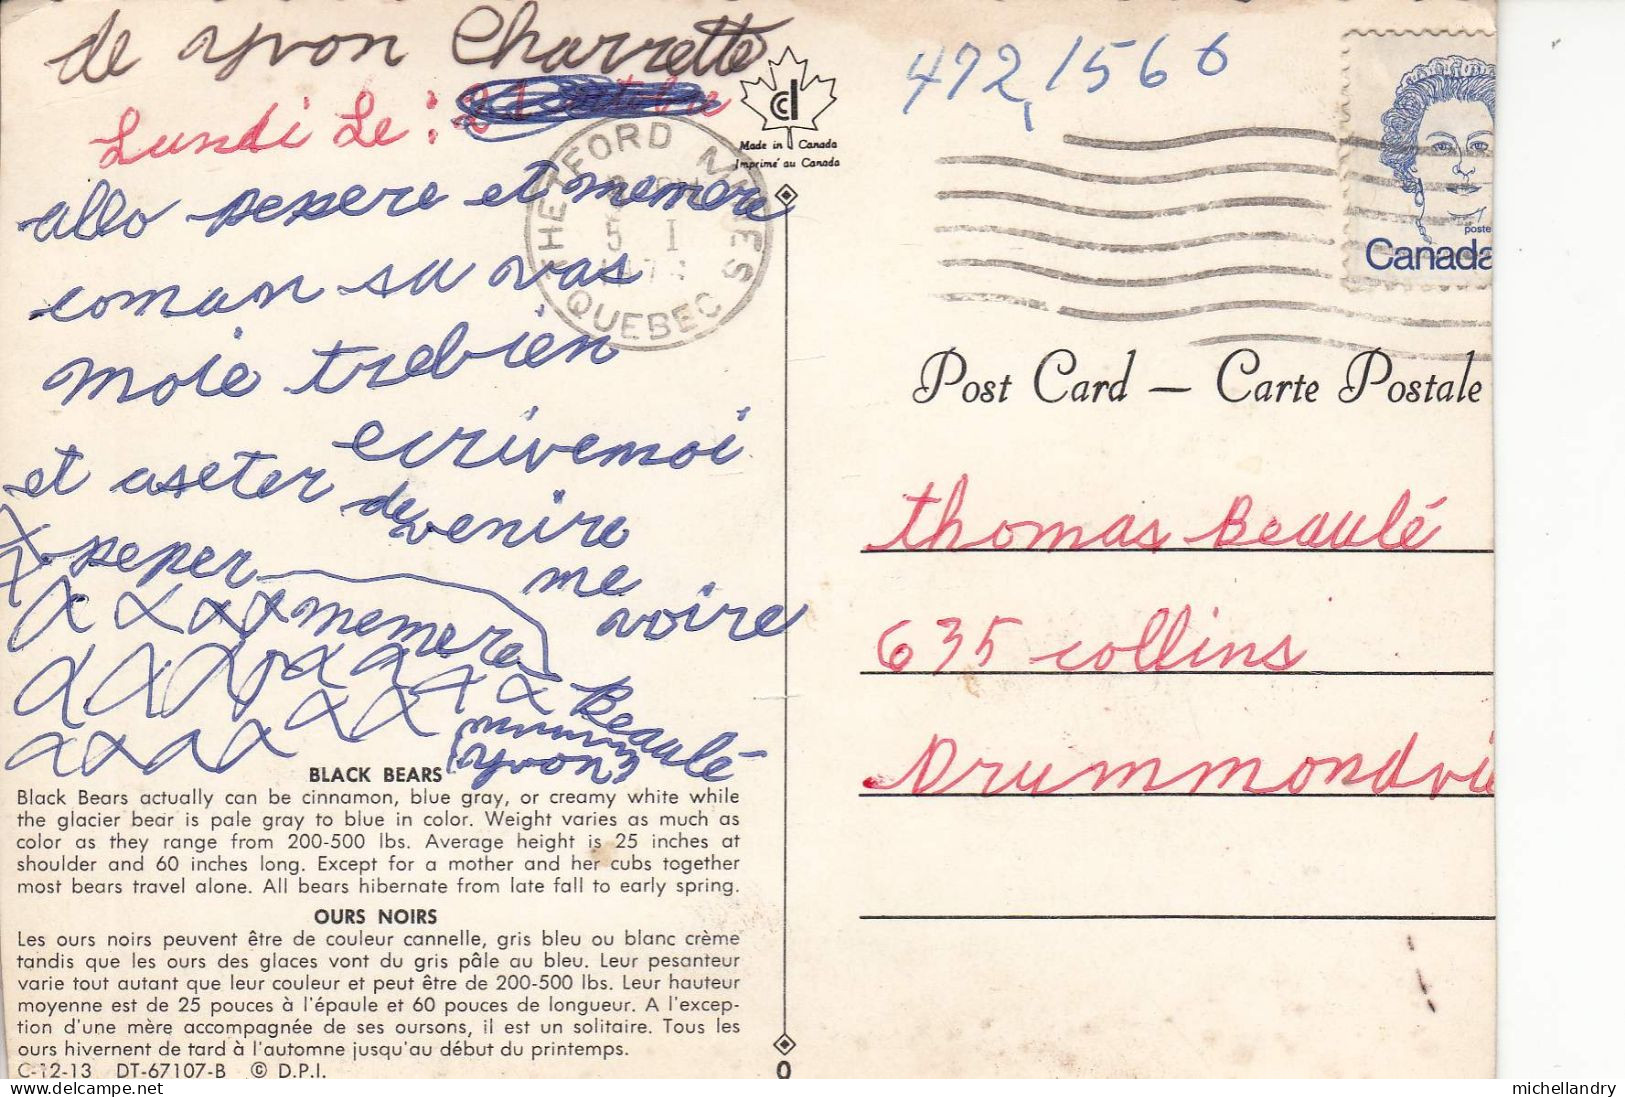 de yvon Charrette
Lundi Le : 21 octobre
allo pepere et memere
coman sa vas
moie trebien
ecrivemoi
et aseter de venire
me
voire
peper
memere
Beaulé
yvon
BLACK BEARS
Black Bears actually can be cinnamon, blue gray, or creamy white while
the glacier bear is pale gray to blue in color. Weight varies as much as
color as they range from 200-500 lbs. Average height is 25 inches at
shoulder and 60 inches long. Except for a mother and her cubs together
most bears travel alone. All bears hibernate from late fall to early spring.
OURS NOIRS
Les ours noirs peuvent être de couleur cannelle, gris bleu ou blanc crème
tandis que les ours des glaces vont du gris pâle au bleu. Leur pesanteur
varie tout autant que leur couleur et peut être de 200-500 lbs. Leur hauteur
moyenne est de 25 pouces à l'épaule et 60 pouces de longueur. A l'excep-
tion d'une mère accompagnée de ses oursons, il est un solitaire. Tous les
ours hivernent de tard à l'automne jusqu'au début du printemps.
C-12-13 DT-67107-B © D.P.I.
Made in Canada
Imprimé au Canada
THETFORD MINES
5 I
QUEBEC
0
472,1566
poste
Canada
Post Card — Carte Postale
thomas Beaulé
635 collins
Drummondvi
michellandry